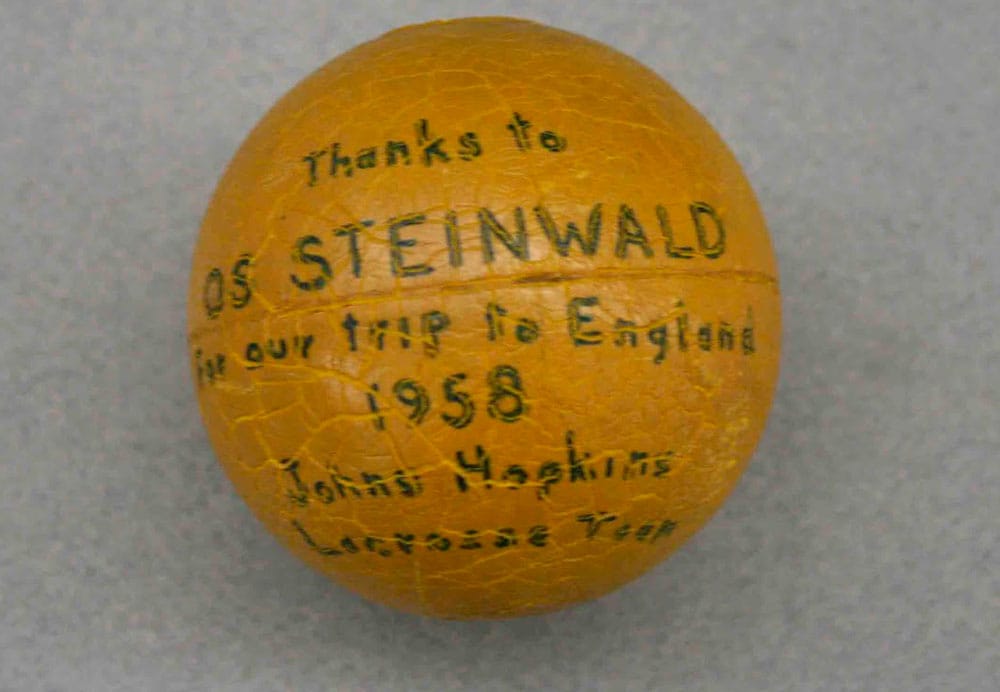 Thanks to
OS STEINWALD
For our trip to England
1958
Johns Hopkins
Lacrosse Team